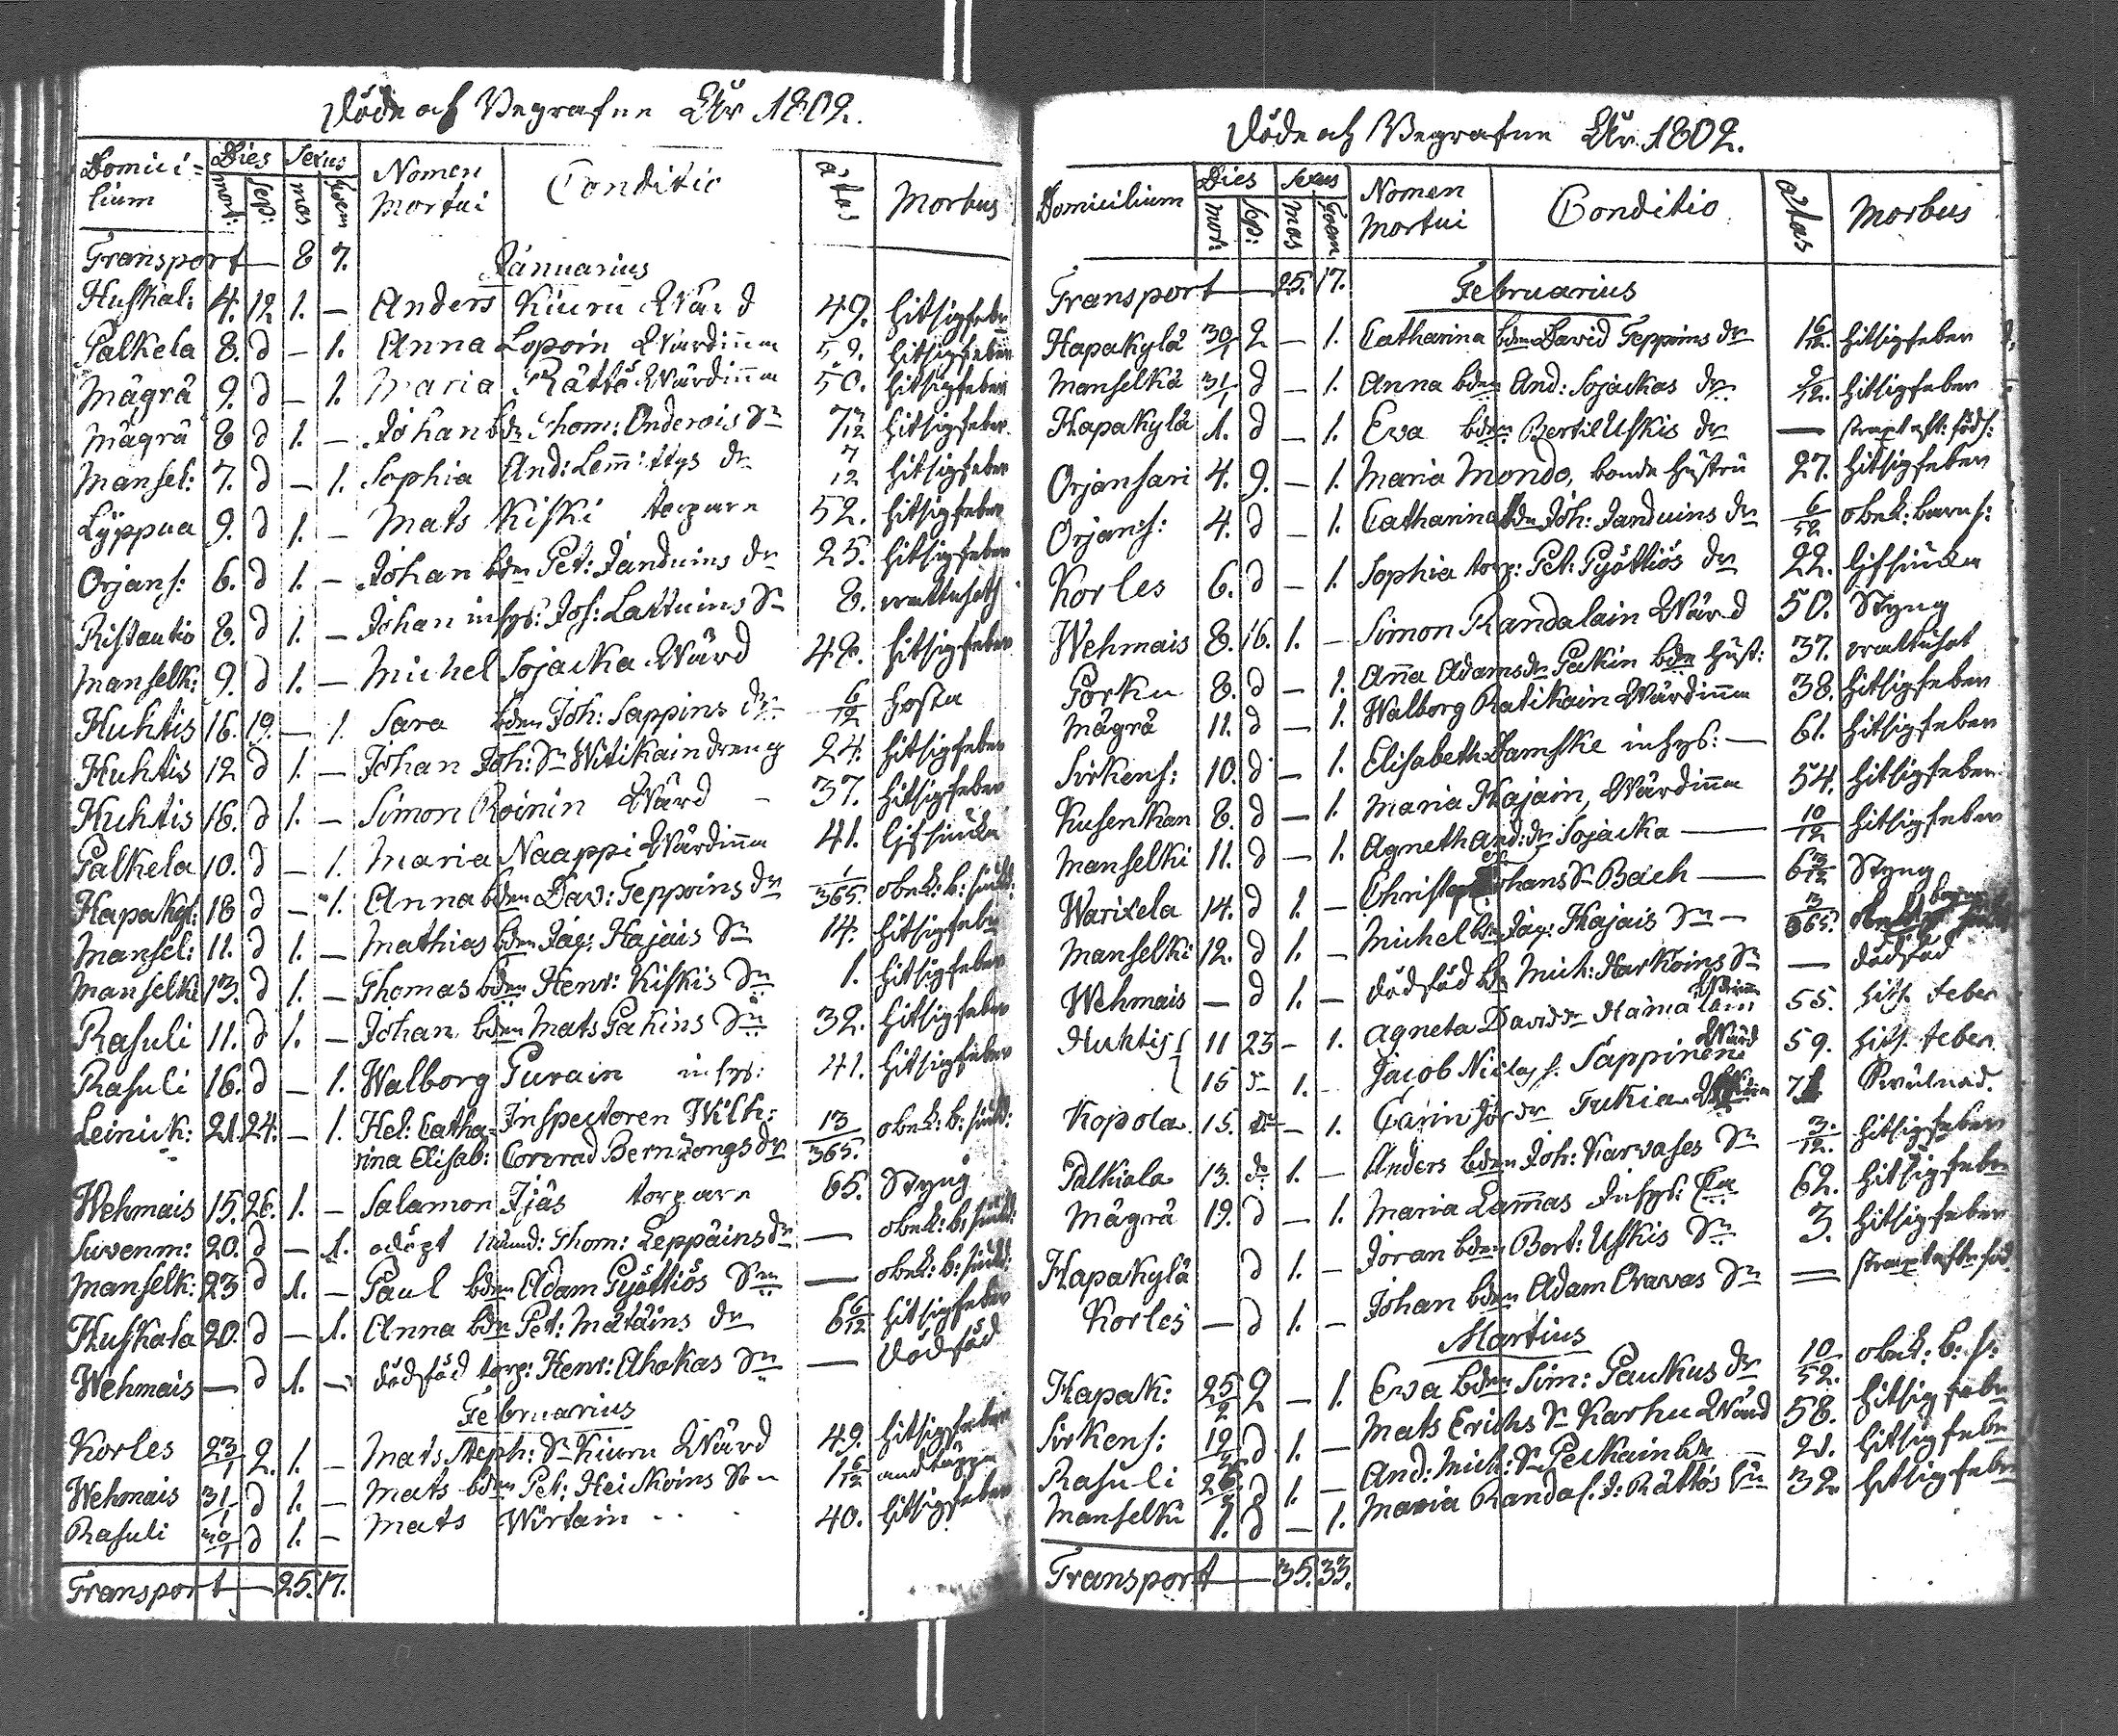 Döde och Begrafne Åhr 1802.
Domici=lium Dies mort: sep: Sexus mas foem Nomen Mortui Conditio ætas Morbus
Transport — 8 7.
Januarius
Huskal: 4. 12 1. — Anders Kiuru Wärd 49. hitsigfeber
Palkela 8. d — 1. Anna Lopoin Wärdinna 59. hitsigfeber
Mägrä 9. d — 1. Maria Rättö Wärdinna 50. hitsigfeber
Mägrä 8 d 1. — Johan bdn Thom: Onderois Sn 7 3/12 hitsigfeber
Mansel: 7. d — 1. Sophia And: Lem̄:ttys dr 7/12 hitsigfeber
Lyppua 9. d 1. — Mats Kiski torpare 52. hitsigfeber
Orjans: 6. d 1. — Johan bdn Pet: Janduins dr 25. hitsigfeber
Ristautio 8. d 1. — Johan inhys: Joh: Lattuins Sn 8. wattusoth
Manselk: 9. d 1. — Michel Sojacka Wärd 48. hitsigfeber
Huhtis 16. 19. — 1. Sara bdn Joh: Sappins dr 6/12 hosta
Huhtis 12 d 1. — Johan Joh: Sn Witikain dreng 24. hitsigfeber
Huhtis 16. d 1. — Simon Roinin Wärd 37. hitsigfeber
Palkela 10. d — 1. Maria Naappi Wärdinna 41. lifsiuka
Hapakyl: 18 d — 1. Anna bdn Dav: Teppoins dr 1/365. obek: b: siukd:
Mansel: 11. d 1. — Mathias bdn Jäg: Hajais Sn 14. hitsigfeber
Manselki 13. d 1. — Thomas bdn Henr: Kiskis Sn 1. hitsigfeber
Rasuli 11. d 1. — Johan bdn Mats Pakins Sn 32. hitsigfeber
Rasuli 16. d — 1. Walborg Purain inhys: 41. hitsigfeber
Leinik: 21. 24. — 1. Hel: Catha= Inspectoren Wilh: 13/365. obek: b: siukd:
rina Elisab: Conrad Berntzongs dr
Wehmais 15. 26. 1. — Salamon Ijäs torpare 65. Styng
Suvenm: 20. d — 1. odöpt Thom: Leppäins dr — obek: b: siukd:
Manselk: 23 d 1. — Paul bdn Adam Pyöttiös Sn — obek: b: siukd:
Huskala 20. d — 1. Anna bdn Pet: Matains dr 6 6/12 hitsigfeber
Wehmais — d 1. — dödföd torp: Henr: Ahokas Sn — dödföd
Februarius
Korles 23/1 2. 1. — Mats Steph: Sn Kiuru Wärd 49. hitsigfeber
Wehmais 31/1 d 1. — Mats bdn Pet: Heiskoins Son 1 6/12 andtäppa
Rasuli 30/1 d 1. — Mats Wirtain 40. hitsigfeber
Transport — 25. 17.
Döde och Begrafne Åhr 1802.
Domicilium Dies mort: sep: Sexus mas foem: Nomen Mortui Conditio ætas Morbus
Transport — 25. 17.
Februarius
Hapakylä 30/1 2 — 1. Catharina bdn David Teppoins dr hitsigfeber
Manselkä 31/1 d — 1. Anna bdn And: Sojackas dr 9/12. hitsigfeber
Hapakylä 1. d — 1. Eva bdn Bertil Uskis dr — strax eft: föds:
Orjansari 4. 9. — 1. Maria Mondo, bonde hustru 27. hitsigfeber
Orjans: 4. d — 1. Catharina bdn Joh: Janduins dr 6/52 obek: barns:
Korles 6. d — 1. Sophia torp: Pet: Pyöttiös dr 22. lifsiuka
Wehmais 8. 16. 1. — Simon Randalain Wärd 50. Styng
Porku 8. d — 1. Anna Adams dr Pakin bdn hust: 37. wattusot
Mägrä 11. d — 1. Walborg Ratikain Wärdinna 38. hitsigfeber
Sirkens: 10. d — 1. Elisabeth Ramske inhys: — 61. hitsigfeber
Kusenkan 8. d — 1. Maria Hajain, Wärdinna 54. hitsigfeber
Manselki 11. d — 1. Agneth And: dr Sojacka — 10/12 hitsigfeber
Warixela 14. d 1. — Christop Johans Sn Bach — 6 3/12 Styng
Manselki 12. d 1. — Michel bdn Jäg: Hajais Sn — 3/365.
Wehmais — d 1. — dödföd bdn Mich: Harkoins Sn — dödföd
Huhtis 11 23 — 1. Agneta Davids dr Hämäläin 55. hits. feber
15 d 1. — Jacob Niclas s. Sappinen Wärd 59. hits. feber
Kopola 15. d — 1. Carin Tukia 71 Swulnad.
Palkiala 13. d 1. — Anders bdn Joh: Karvases Sn 3/12. hitsigfeber
Mägrä 19. d — 1. Maria Lam̄as Inhys: 62. hitsigfeber
Hapakylä d 1. — Jöran bdn Bert: Uskis Sn 3. hitsigfeber
Korles — d 1. — Johan bdn Adam Oravas Sn — strax efter föd
Martius
Hapak: 25/2 2 — 1. Eva bdn Sim: Paukus dr 10/52. obek: b: s:
Sirkens: 19/2 d 1. — Mats Erichs Sn Karhu Wärd 58. hitsigfeber
Rasuli 26/2 d 1. — And: Mich: Sn Peckain bdn — 21. hitsigfeber
Manselki 1. d — 1. Maria Randal. d: Rättös hu 32 hitsigfeber
Transport — 35. 33.